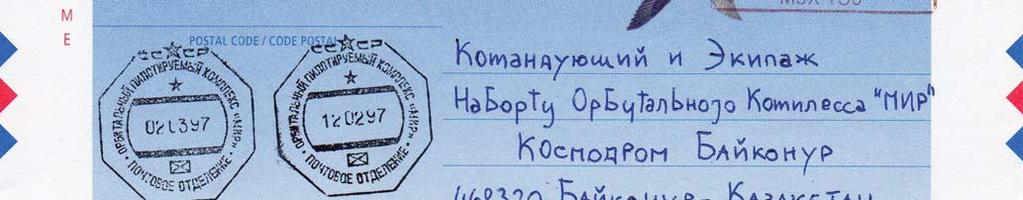 M
E
MOX 1S0
POSTAL CODE / CODE POSTAL
СССР
ОРБИТАЛЬНЫЙ ПИЛОТИРУЕМЫЙ КОМПЛЕКС «МИР»
020397
ПОЧТОВОЕ ОТДЕЛЕНИЕ
СССР
ОРБИТАЛЬНЫЙ ПИЛОТИРУЕМЫЙ КОМПЛЕКС «МИР»
120297
ПОЧТОВОЕ ОТДЕЛЕНИЕ
Командующий и Экипаж
На Борту Орбутального Комплесса "МИР"
Космодром Байконур
468320 Байконур - Казакстан